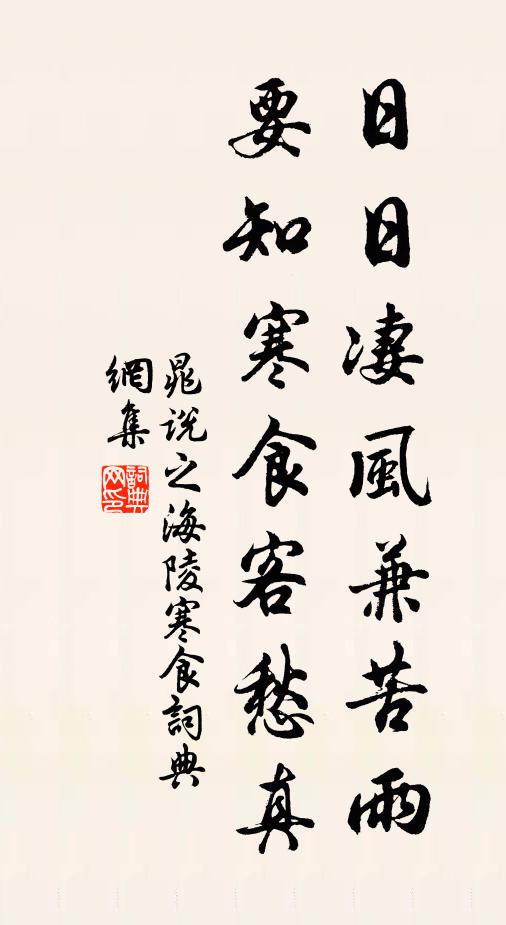 日日淒風兼苦雨
要知寒食客愁真
晁說之海陵寒食詞典
網集
詞典網印